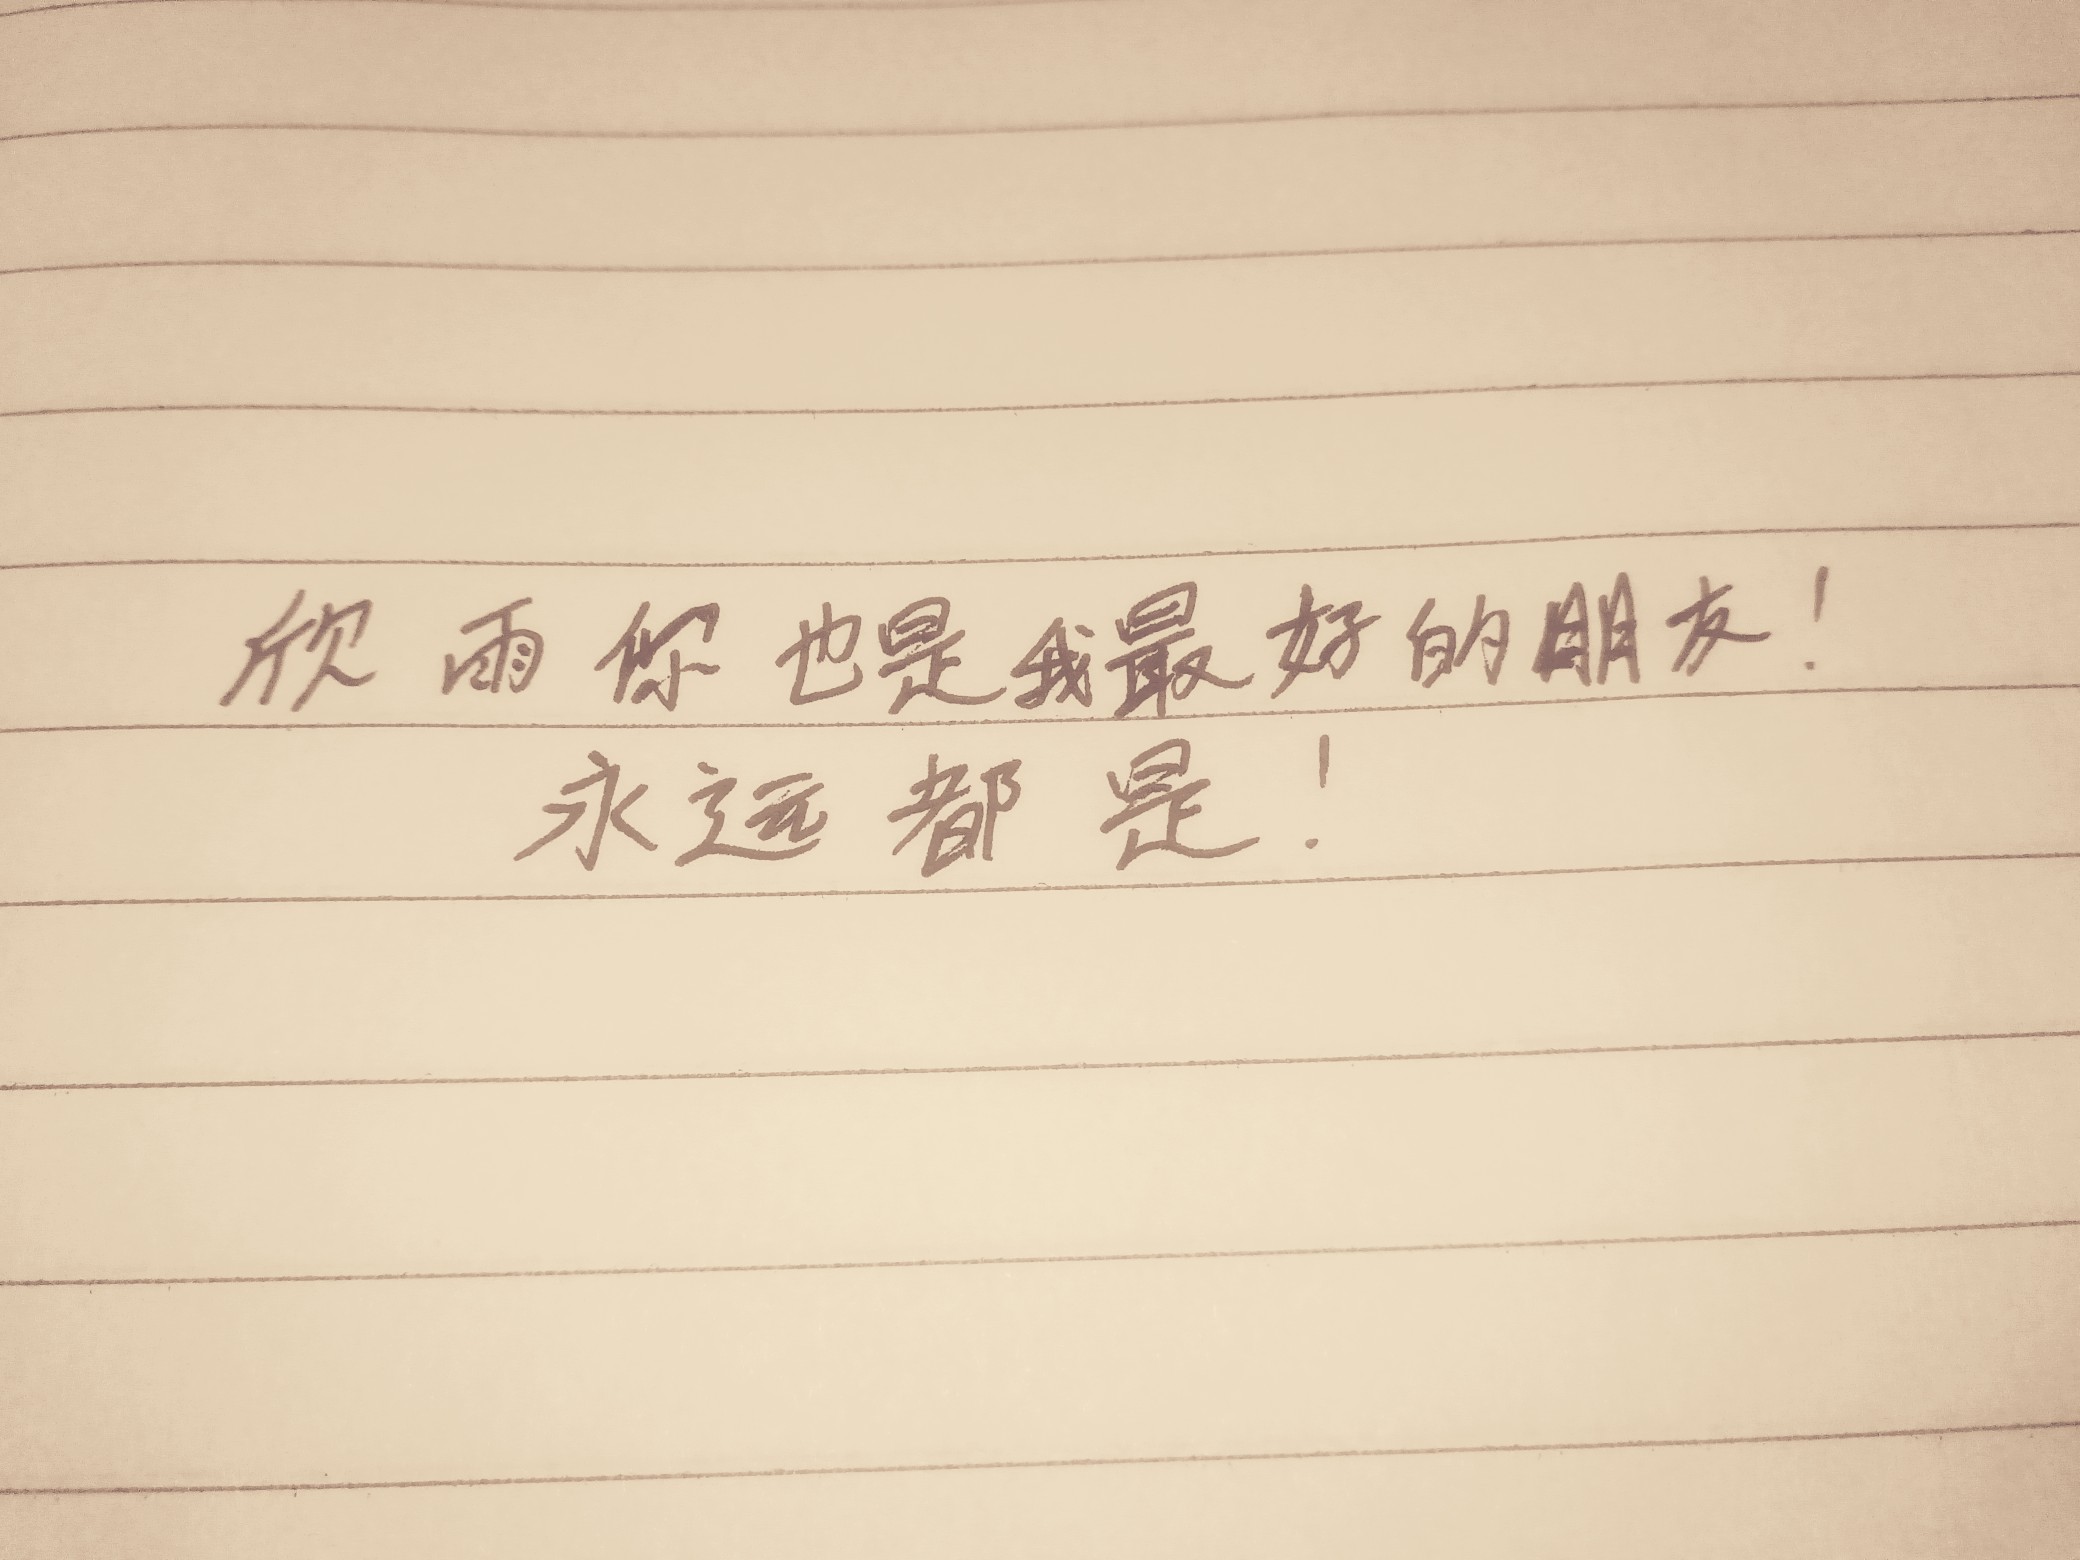 欣雨你也是我最好的朋友!
永远都是!